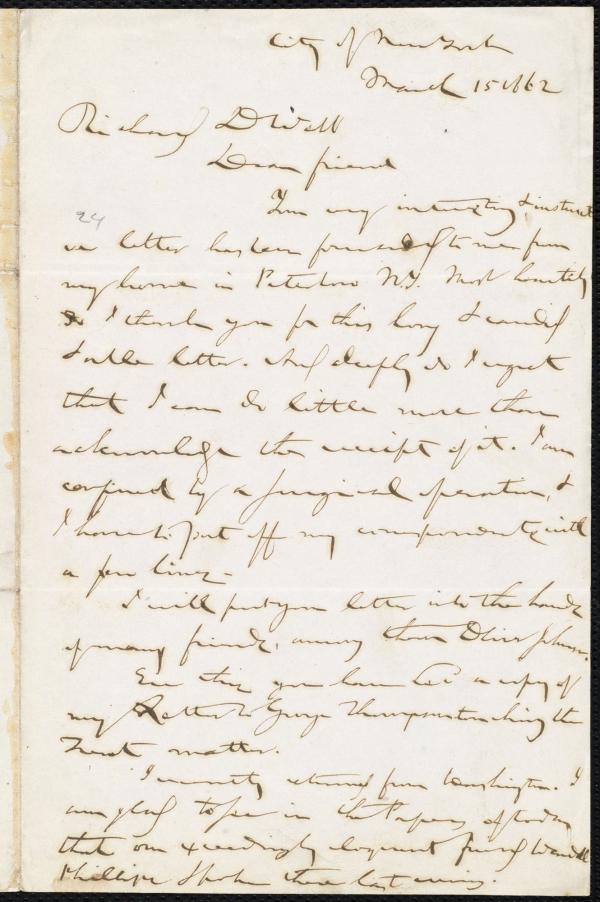 City of New York
March 15 1862
Richard D Webb
Dear friend
24
Your very interesting & instruct
ive letter has been forwarded to me from
my home in Peterboro N.Y. Most heartily
do I thank you for this long & candid
& able letter. And deeply do I regret
that I can do little more than
acknowledge the receipt of it. I am
confined by a surgical operation, &
I have to put off my correspondents with
a few lines.
I will put your letter into the hands
of many friends, among them Oliver Johnson.
Ere this you have had a copy of
my Letter to George Thompson touching the
Trent matter.
I recently returned from Washington. I
am glad to see in the Papers of today
that our exceedingly eloquent friend Wendell
Phillips spoke there last evening.